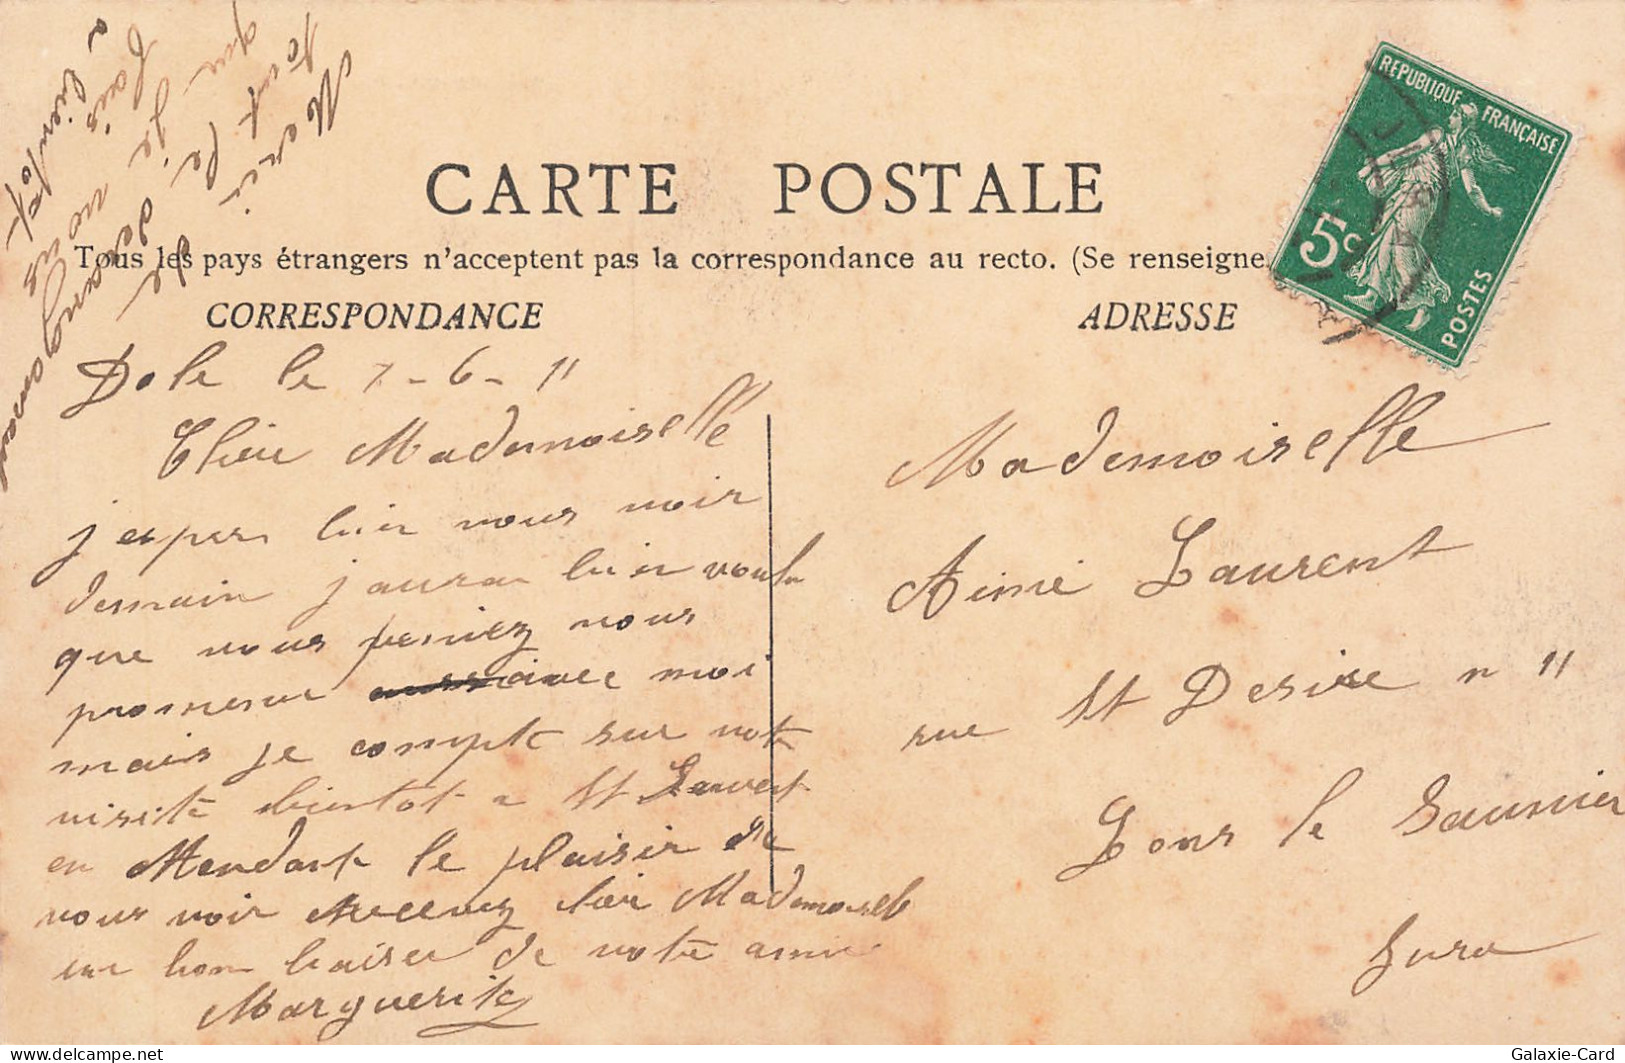 CARTE POSTALE
Tous les pays étrangers n'acceptent pas la correspondance au recto. (Se renseigne
CORRESPONDANCE
ADRESSE
REPUBLIQUE FRANÇAISE
5c
POSTES
Dole le 7-6-11
Chère Mademoiselle
j'esper bien vous voir
demain j'aurai bien voulu
que vous veniez vous
promener avec moi
mais je compte sur votre
visite bientot a St Laurent
en Attendant le plaisir de
vous voir Recevez Chère Mademoiselle
un bon baiser de votre amie
Marguerite
Merci
tout le
de
que je
fais
vous
a bientot
Mademoiselle
Aimé Laurent
rue St Desire n 11
Lons le Saunier
Jura
Galaxie-Card
www.delcampe.net